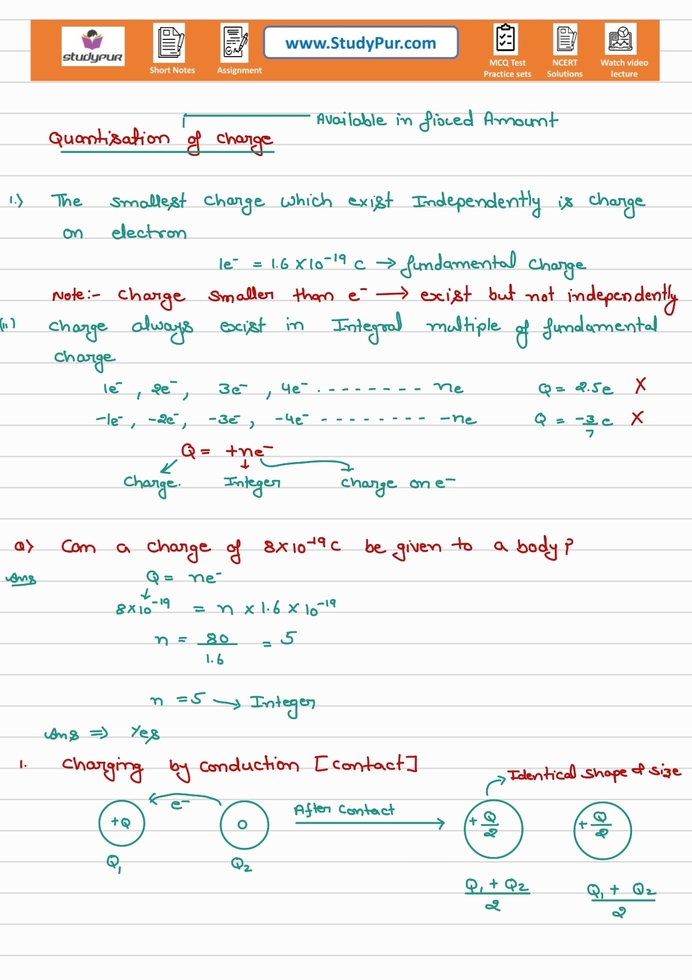 studypur
Short Notes
Assignment
www.StudyPur.com
MCQ Test
Practice sets
NCERT
Solutions
Watch video
lecture
Available in fixed Amount
Quantisation of charge
1.) The smallest charge which exist Independently is charge
on electron
1e⁻ = 1.6 × 10⁻¹⁹ C → fundamental charge
Note:- charge smaller than e⁻ → exist but not independently
(ii) charge always exist in Integral multiple of fundamental
charge
1e⁻, 2e⁻, 3e⁻, 4e⁻ - - - - - - - - ne Q = 2.5e X
-1e⁻, -2e⁻, -3e⁻, -4e⁻ - - - - - - - - -ne Q = -3/7 e X
Q = +ne⁻
Charge. Integer Charge on e⁻
Q) Can a charge of 8×10⁻¹⁹C be given to a body?
Ans Q = ne⁻
8×10⁻¹⁹ = n × 1.6 × 10⁻¹⁹
n = 80/1.6 = 5
n = 5 → Integer
Ans ⇒ Yes
1. Charging by conduction [contact]
Identical shape & size
e⁻
After Contact
+Q O +Q/2 +Q/2
Q₁ Q₂
Q₁ + Q₂/2 Q₁ + Q₂/2